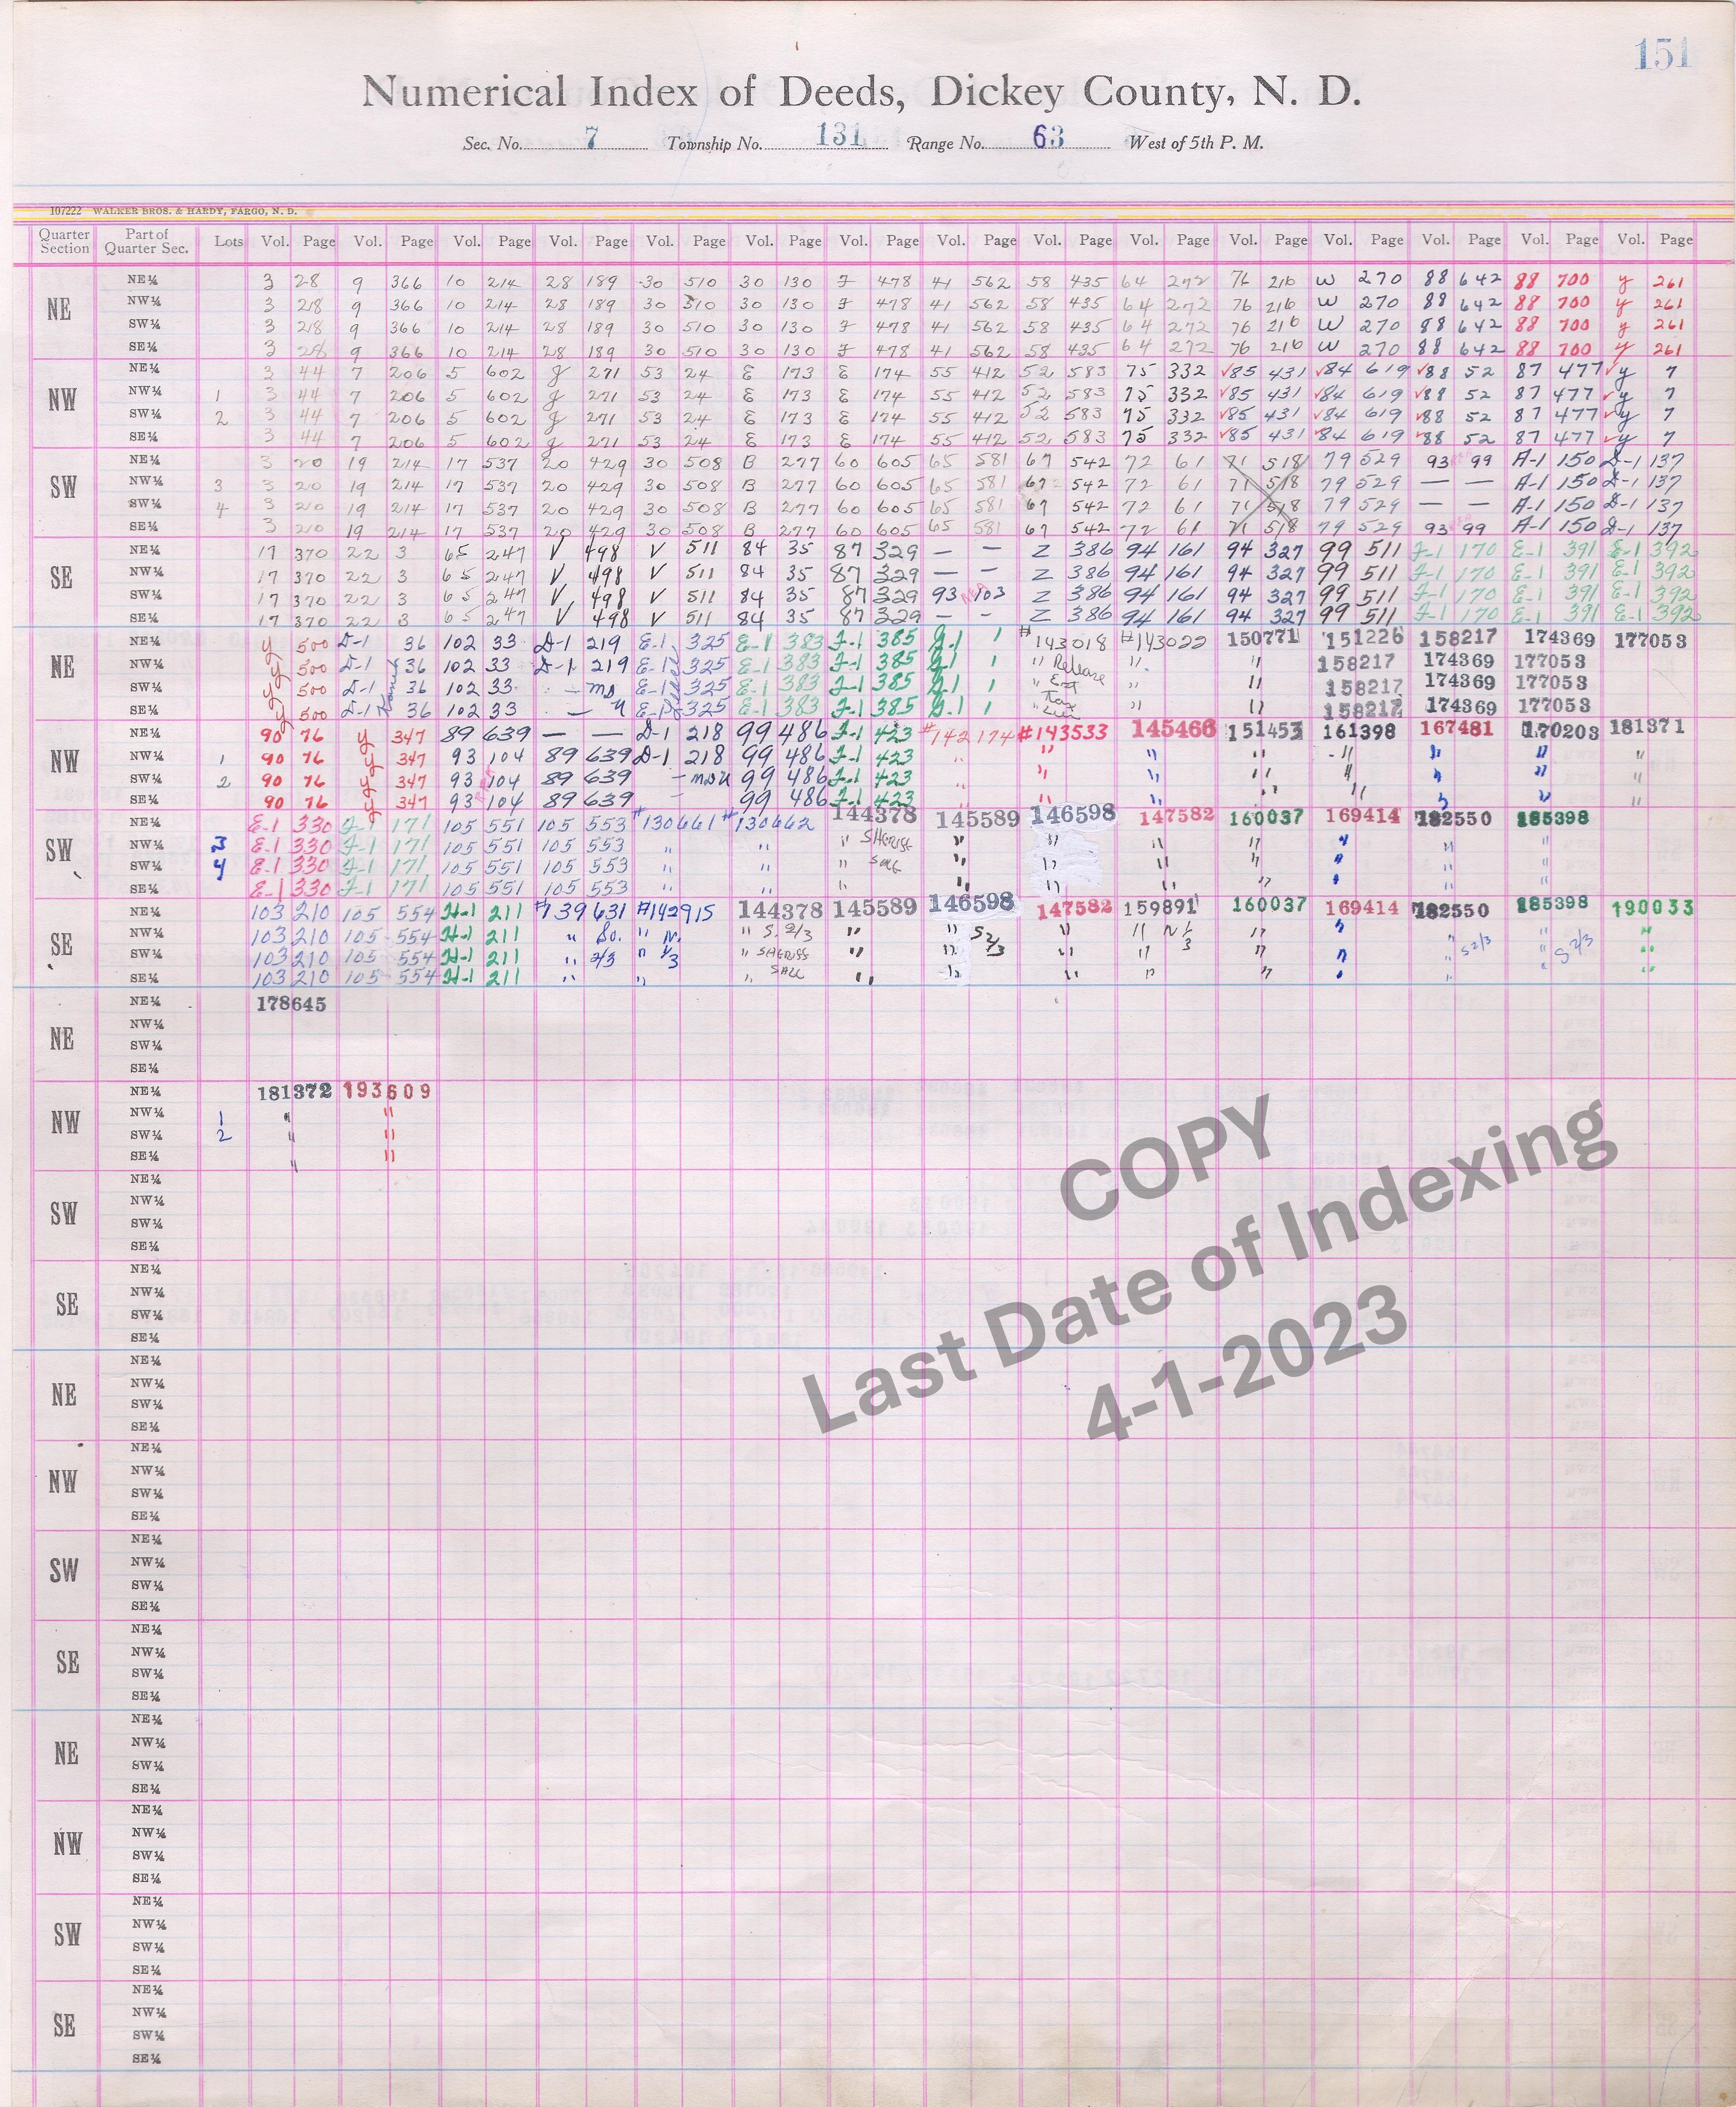 151
Numerical Index of Deeds, Dickey County, N. D.
Sec. No. 7 Township No. 131 Range No. 63 West of 5th P. M.
107222 WALKER BROS. & HARDY, FARGO, N. D.
Quarter Section Part of Quarter Sec. Lots Vol. Page Vol. Page Vol. Page Vol. Page Vol. Page Vol. Page Vol. Page Vol. Page Vol. Page Vol. Page Vol. Page Vol. Page Vol. Page Vol. Page Vol. Page
NE
NE¼ 3 28 9 366 10 214 28 189 30 510 30 130 F 478 41 562 58 435 64 272 76 216 W 270 88 642 88 700 y 261
NW¼ 3 28 9 366 10 214 28 189 30 510 30 130 F 478 41 562 58 435 64 272 76 216 W 270 88 642 88 700 y 261
SW¼ 3 28 9 366 10 214 28 189 30 510 30 130 F 478 41 562 58 435 64 272 76 216 W 270 88 642 88 700 y 261
SE¼ 3 28 9 366 10 214 28 189 30 510 30 130 F 478 41 562 58 435 64 272 76 216 W 270 88 642 88 700 y 261
NW
NE¼ 3 44 7 206 5 602 g 271 53 24 E 173 E 174 55 412 52 583 75 332 √85 431 √84 619 √88 52 87 477 √y 7
NW¼ 1 3 44 7 206 5 602 g 271 53 24 E 173 E 174 55 412 52 583 75 332 √85 431 √84 619 √88 52 87 477 √y 7
SW¼ 2 3 44 7 206 5 602 g 271 53 24 E 173 E 174 55 412 52 583 75 332 √85 431 √84 619 √88 52 87 477 √y 7
SE¼ 3 44 7 206 5 602 g 271 53 24 E 173 E 174 55 412 52 583 75 332 √85 431 √84 619 √88 52 87 477 √y 7
SW
NE¼ 3 20 19 214 17 537 20 429 30 508 B 277 60 605 65 581 67 542 72 61 71 518 79 529 93 99 A-1 150 D-1 137
NW¼ 3 3 20 19 214 17 537 20 429 30 508 B 277 60 605 65 581 67 542 72 61 71 518 79 529 — — A-1 150 D-1 137
SW¼ 4 3 20 19 214 17 537 20 429 30 508 B 277 60 605 65 581 67 542 72 61 71 518 79 529 — — A-1 150 D-1 137
SE¼ 3 20 19 214 17 537 20 429 30 508 B 277 60 605 65 581 67 542 72 61 71 518 79 529 93 99 A-1 150 D-1 137
SE
NE¼ 17 370 22 3 65 247 V 498 V 511 84 35 87 329 — — Z 386 94 161 94 327 99 511 F-1 170 E-1 391 E-1 392
NW¼ 17 370 22 3 65 247 V 498 V 511 84 35 87 329 — — Z 386 94 161 94 327 99 511 F-1 170 E-1 391 E-1 392
SW¼ 17 370 22 3 65 247 V 498 V 511 84 35 87 329 93 103 Z 386 94 161 94 327 99 511 F-1 170 E-1 391 E-1 392
SE¼ 17 370 22 3 65 247 V 498 V 511 84 35 87 329 — — Z 386 94 161 94 327 99 511 F-1 170 E-1 391 E-1 392
NE
NE¼ y 500 D-1 36 102 33 D-1 219 E-1 325 E-1 383 F-1 385 G-1 1 #143018 #143022 150771 151226 158217 174369 177053
NW¼ y 500 D-1 36 102 33 D-1 219 E-1 325 E-1 383 F-1 385 G-1 1 " Release " " 158217 174369 177053
SW¼ y 500 D-1 36 102 33 — E-1 325 E-1 383 F-1 385 G-1 1 " Est " " 158217 174369 177053
SE¼ y 500 D-1 36 102 33 — E-1 325 E-1 383 F-1 385 G-1 1 " Tax Lien " " 158217 174369 177053
NW
NE¼ 90 76 y 347 89 639 — — D-1 218 99 486 F-1 423 #142174 #143533 145466 151453 161398 167481 170203 181371
NW¼ 1 90 76 y 347 93 104 89 639 D-1 218 99 486 F-1 423 " " " " " " " "
SW¼ 2 90 76 y 347 93 104 89 639 — 99 486 F-1 423 " " " " " " " "
SE¼ 90 76 y 347 93 104 89 639 — 99 486 F-1 423 " " " " " " " "
SW
NE¼ E-1 330 F-1 171 105 551 105 553 #130661 #130662 144378 145589 146598 147582 160037 169414 182550 185398
NW¼ 3 E-1 330 F-1 171 105 551 105 553 " " " SHERIFF " " " " " " "
SW¼ 4 E-1 330 F-1 171 105 551 105 553 " " " SALE " " " " " " "
SE¼ E-1 330 F-1 171 105 551 105 553 " " " " " " " " " "
SE
NE¼ 103 210 105 554 H-1 211 #139631 #142915 144378 145589 146598 147582 159891 160037 169414 182550 185398 190033
NW¼ 103 210 105 554 H-1 211 " So. " N. " S. 2/3 " " S 2/3 " " N 1/3 " " " " "
SW¼ 103 210 105 554 H-1 211 " 2/3 " 1/3 " SHERIFFS " " " " " " " S 2/3 " S 2/3 "
SE¼ 103 210 105 554 H-1 211 " " " SALE " " " " " " " " "
NE
NE¼ 178645
NW¼
SW¼
SE¼
NW
NE¼ 181372 193609
NW¼ 1 " "
SW¼ 2 " "
SE¼ " "
SW
NE¼
NW¼
SW¼
SE¼
SE
NE¼
NW¼
SW¼
SE¼
NE
NE¼
NW¼
SW¼
SE¼
NW
NE¼
NW¼
SW¼
SE¼
SW
NE¼
NW¼
SW¼
SE¼
SE
NE¼
NW¼
SW¼
SE¼
NE
NE¼
NW¼
SW¼
SE¼
NW
NE¼
NW¼
SW¼
SE¼
SW
NE¼
NW¼
SW¼
SE¼
SE
NE¼
NW¼
SW¼
SE¼
COPY
Last Date of Indexing
4-1-2023